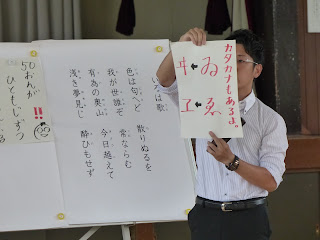 カタカナもあるよ。
ヰ←ゐ
ヱ←ゑ
いろは歌
色は匂へど 散りぬるを
我が世誰ぞ 常ならむ
有為の奥山 今日越えて
浅き夢見じ 酔ひもせず
50おんが !!
ひともじずつ